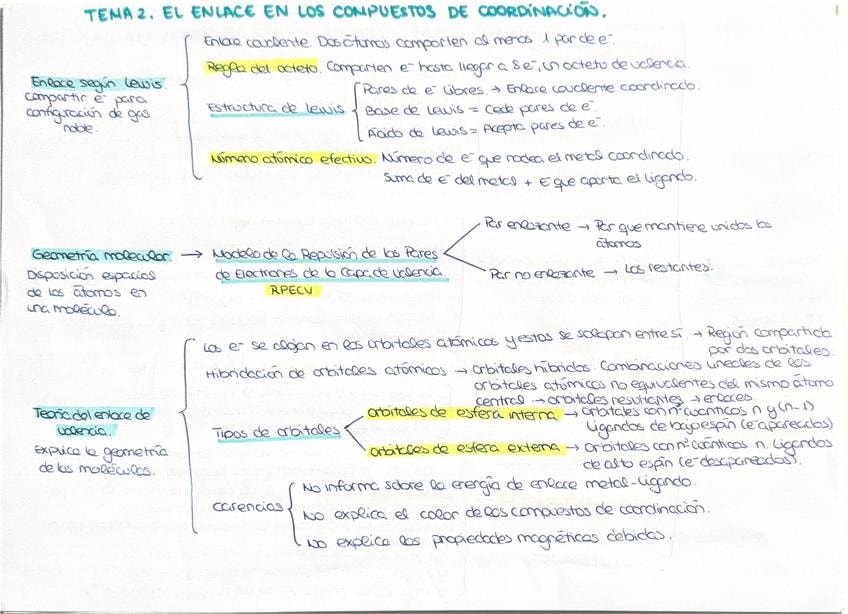 TEMA 2. EL ENLACE EN LOS COMPUESTOS DE COORDINACIÓN.
Enlace según Lewis.
compartir e⁻ para
configuración de gas
noble.
Enlace covalente Dos átomos comparten al menos 1 par de e⁻.
Regla del octeto. Comparten e⁻ hasta llegar a 8 e⁻, un octeto de valencia.
Estructura de Lewis
Pares de e⁻ libres. → Enlace covalente coordinado.
Base de Lewis = Cede pares de e⁻.
Ácido de Lewis = Acepta pares de e⁻.
Número atómico efectivo. Número de e⁻ que rodea el metal coordinado.
Suma de e⁻ del metal + e⁻ que aporta el ligando.
Geometría molecular. →
Disposición espacial
de los átomos en
una molécula.
Modelo de la Repulsión de los Pares
de Electrones de la Capa de valencia.
RPECV
Par enlazante → Par que mantiene unidos los
átomos
Par no enlazante → Los restantes.
Teoría del enlace de
valencia.
Explica la geometría
de las moléculas.
Los e⁻ se alojan en los orbitales atómicos y estos se solapan entre sí. → Región compartida
por dos orbitales.
Hibridación de orbitales atómicos → orbitales híbridos. Combinaciones lineales de los
orbitales atómicos no equivalentes del mismo átomo
central → orbitales resultantes → enlaces.
Tipos de orbitales
orbitales de esfera interna → orbitales con nº cuánticos n y (n-1)
Ligandos de bajo espín (e⁻ apareados)
orbitales de esfera externa → Orbitales con nº cuánticos n. Ligandos
de alto espín (e⁻ desapareados).
carencias
No informa sobre la energía de enlace metal-ligando.
No explica el color de los compuestos de coordinación.
No explica las propiedades magnéticas debidas.